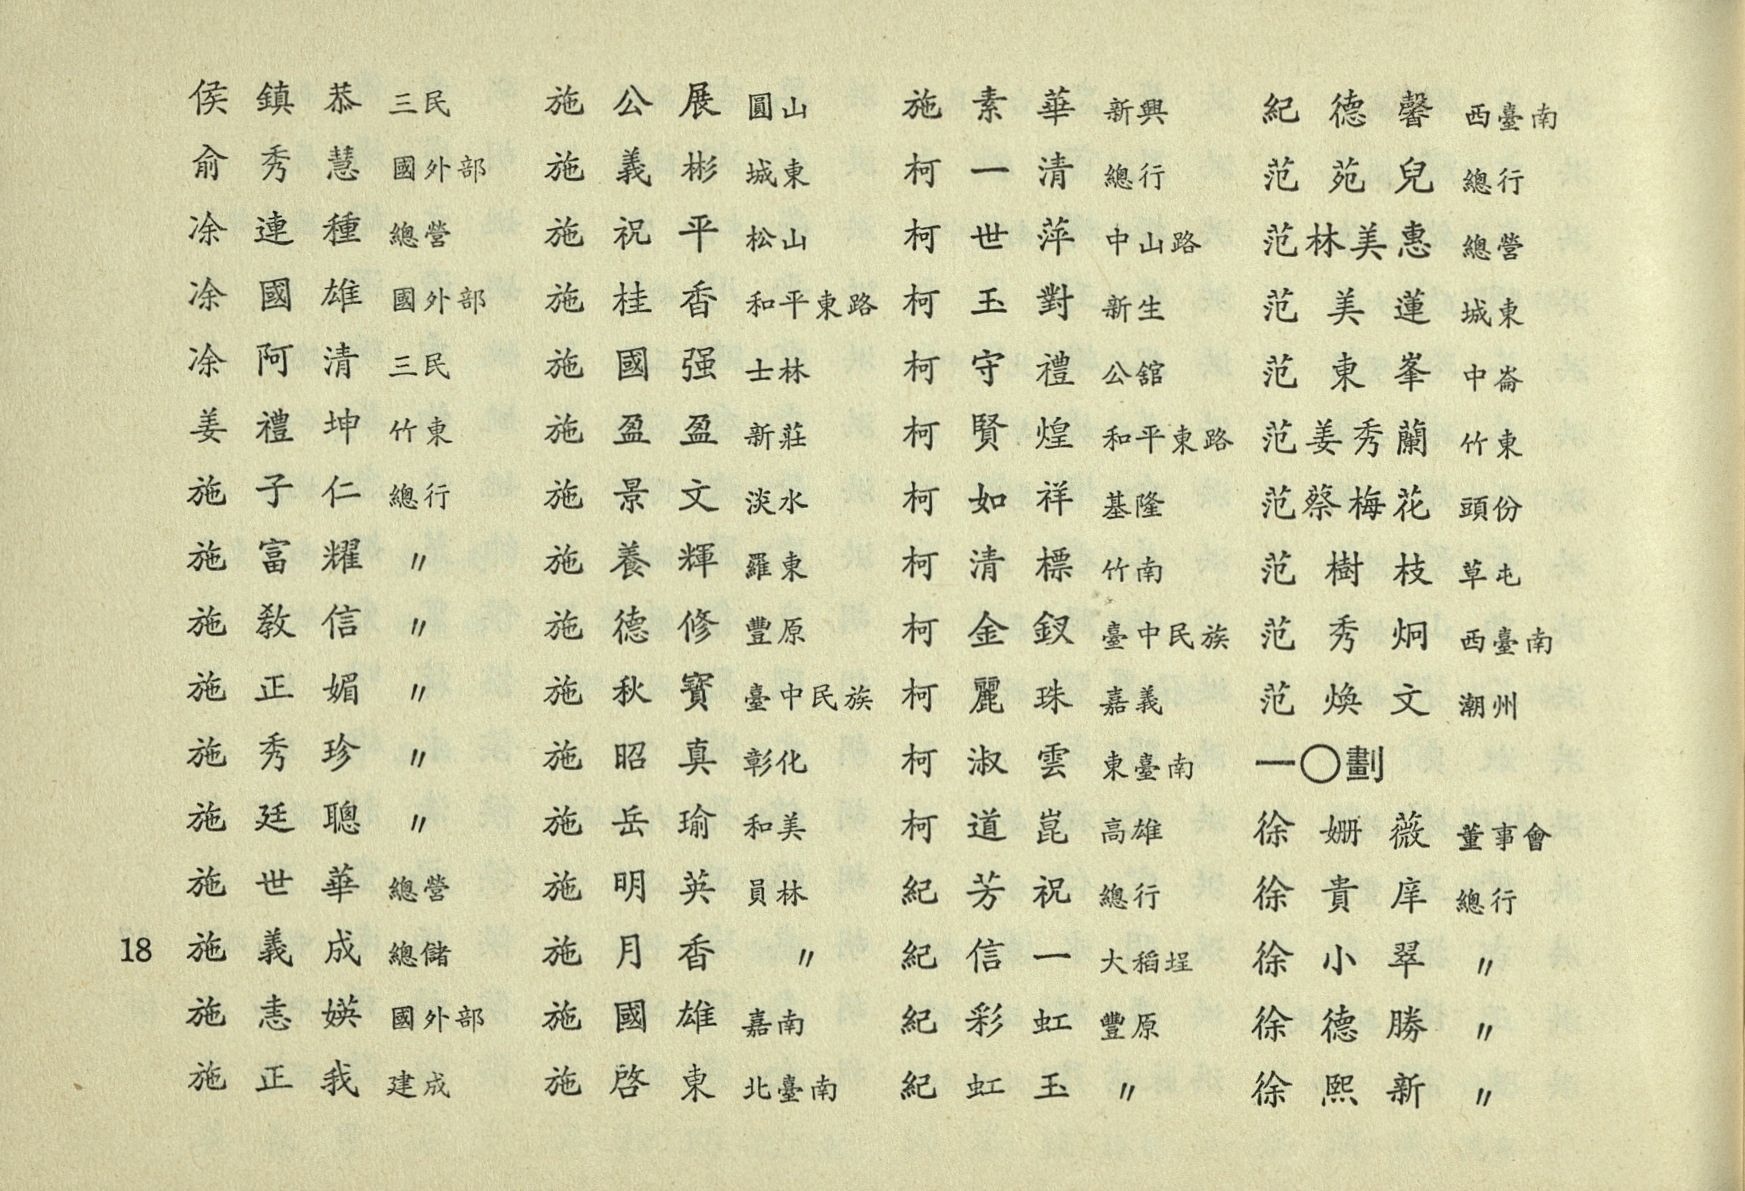 侯鎮恭 三民
俞秀慧 國外部
凃連種 總營
凃國雄 國外部
凃阿清 三民
姜禮坤 竹東
施子仁 總行
施富耀 〃
施敎信 〃
施正媚 〃
施秀珍 〃
施廷聰 〃
施世華 總營
施義成 總儲
施恚媖 國外部
施正我 建成
施公展 圓山
施義彬 城東
施祝平 松山
施桂香 和平東路
施國强 士林
施盈盈 新莊
施景文 淡水
施養輝 羅東
施德修 豐原
施秋寶 臺中民族
施昭真 彰化
施岳瑜 和美
施明英 員林
施月香 〃
施國雄 嘉南
施啓東 北臺南
施素華 新興
柯一清 總行
柯世萍 中山路
柯玉對 新生
柯守禮 公舘
柯賢煌 和平東路
柯如祥 基隆
柯清標 竹南
柯金釵 臺中民族
柯麗珠 嘉義
柯淑雲 東臺南
柯道崑 高雄
紀芳祝 總行
紀信一 大稻埕
紀彩虹 豐原
紀虹玉 〃
紀德馨 西臺南
范苑兒 總行
范林美惠 總營
范美蓮 城東
范東峯 中崙
范姜秀蘭 竹東
范蔡梅花 頭份
范樹枝 草屯
范秀炯 西臺南
范煥文 潮州
一〇劃
徐姍薇 董事會
徐貴庠 總行
徐小翠 〃
徐德勝 〃
徐熙新 〃
18